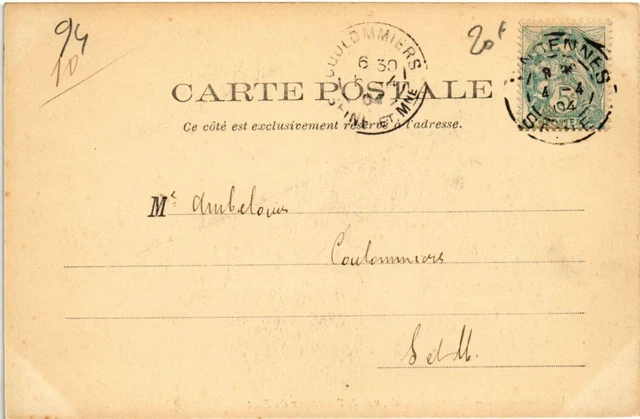 94
10
20f
COULOMMIERS
6 30
04
SEINE-ET-MNE
8
4 - 4
04
SEINE
CARTE POSTALE
Ce côté est exclusivement réservé à l'adresse.
Me
Coulommiers
S et M.